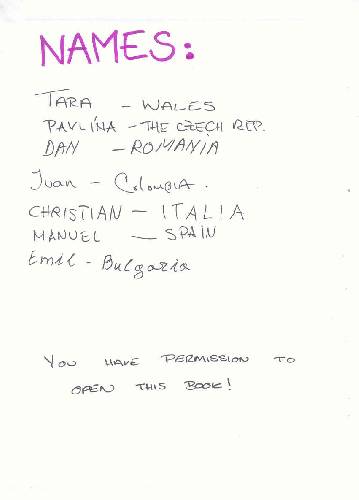 NAMES:
TARA - WALES
PAVLÍNA - THE CZECH REP.
DAN - ROMANIA
Juan - Colombia.
CHRISTIAN - ITALIA
MANUEL - SPAIN
Emil - Bulgaria
YOU HAVE PERMISSION TO
OPEN THIS BOOK!